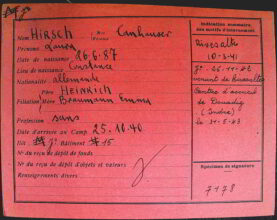 Nom HIRSCH Née Einhauser
Prénoms Laura
Date de naissance 26.6.87
Lieu de naissance Constance
Nationalité allemande
Père HEINRICH
Filiation Mère Braumann Emma
Profession sans
Date d'arrivée au Camp 25.10.40.
Ilot Bâtiment 15
N° du reçu de dépôt de fonds
N° du reçu de dépôt d'objets et valeurs
Renseignements divers
Indication sommaire
des motifs d'internement
Rivesaltes
10-3-41
26-11-42
venant de Rivesaltes
Centre d'accueil
de Douadic
(Indre)
le 31-5-43
Spécimen de signature
7178